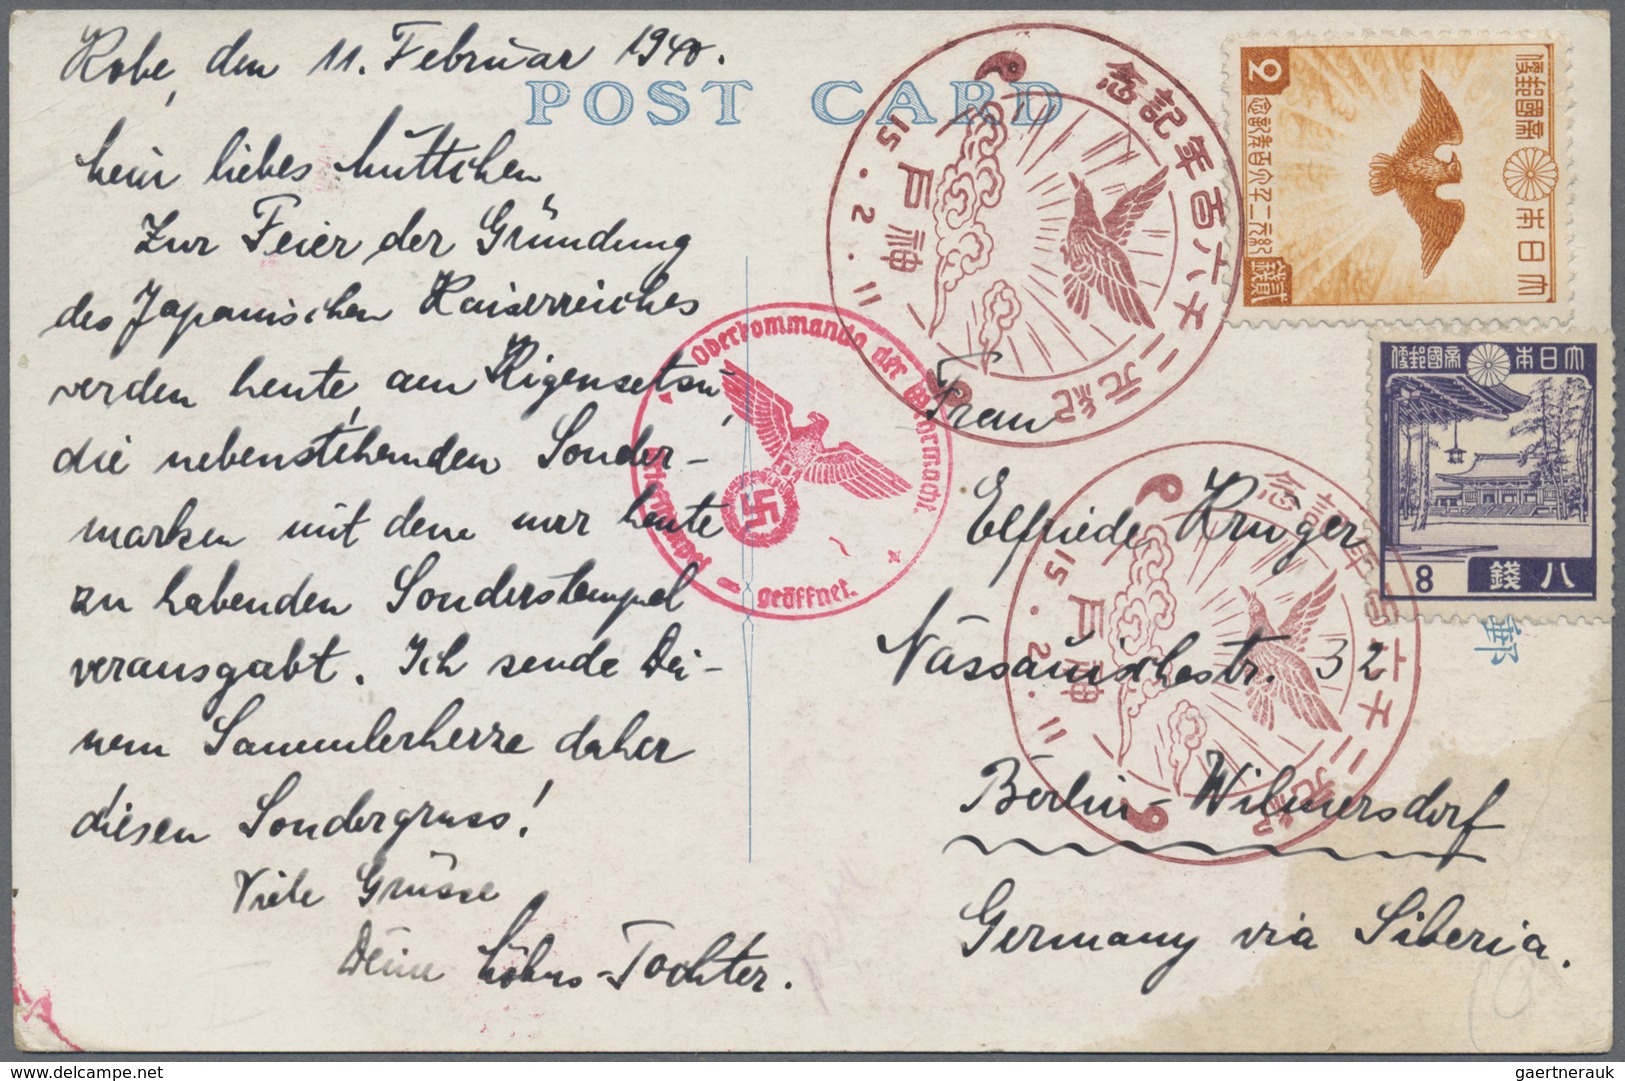 Kobe, den 11. Februar 1940.
POST CARD
Mein liebes Muttchen,
Zur Feier der Gründung
des Japanischen Kaiserreiches
werden heute, am Kigensetsu,
die nebenstehenden Sonder-
marken mit dem nur heute
zu habenden Sonderstempel
verausgabt. Ich sende Dei-
nem Sammlerherze daher
diesen Sondergruss!
Viele Grüsse
Deine
Tochter.
Frau
Elfriede Krüger
Nassauischestr. 32
Berlin-Wilmersdorf
Germany via Siberia.
紀元二千六百年記念
神戸
15.2.11
紀元二千六百年記念
神戸
15.2.11
Oberkommando der Wehrmacht
geöffnet.
大日本帝國郵便
紀元二千六百年記念
貳錢
2
大日本帝國郵便
8
八錢
郵
gaertnerauk